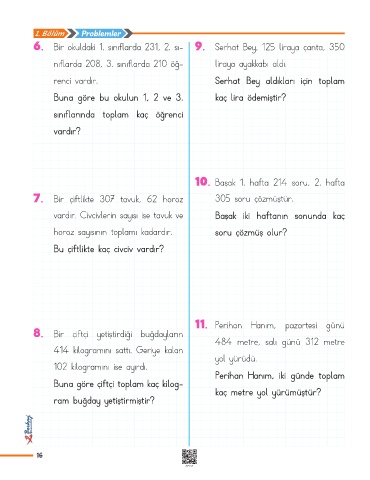 1. Bölüm Problemler
6. Bir okuldaki 1. sınıflarda 231, 2. sı-
nıflarda 208, 3. sınıflarda 210 öğ-
renci vardır.
Buna göre bu okulun 1, 2 ve 3.
sınıflarında toplam kaç öğrenci
vardır?
7. Bir çiftlikte 307 tavuk, 62 horoz
vardır. Civcivlerin sayısı ise tavuk ve
horoz sayısının toplamı kadardır.
Bu çiftlikte kaç civciv vardır?
8. Bir çiftçi yetiştirdiği buğdayların
414 kilogramını sattı. Geriye kalan
102 kilogramını ise ayırdı.
Buna göre çiftçi toplam kaç kilog-
ram buğday yetiştirmiştir?
9. Serhat Bey, 125 liraya çanta, 350
liraya ayakkabı aldı.
Serhat Bey aldıkları için toplam
kaç lira ödemiştir?
10. Başak 1. hafta 214 soru, 2. hafta
305 soru çözmüştür.
Başak iki haftanın sonunda kaç
soru çözmüş olur?
11. Perihan Hanım, pazartesi günü
484 metre, salı günü 312 metre
yol yürüdü.
Perihan Hanım, iki günde toplam
kaç metre yol yürümüştür?
16